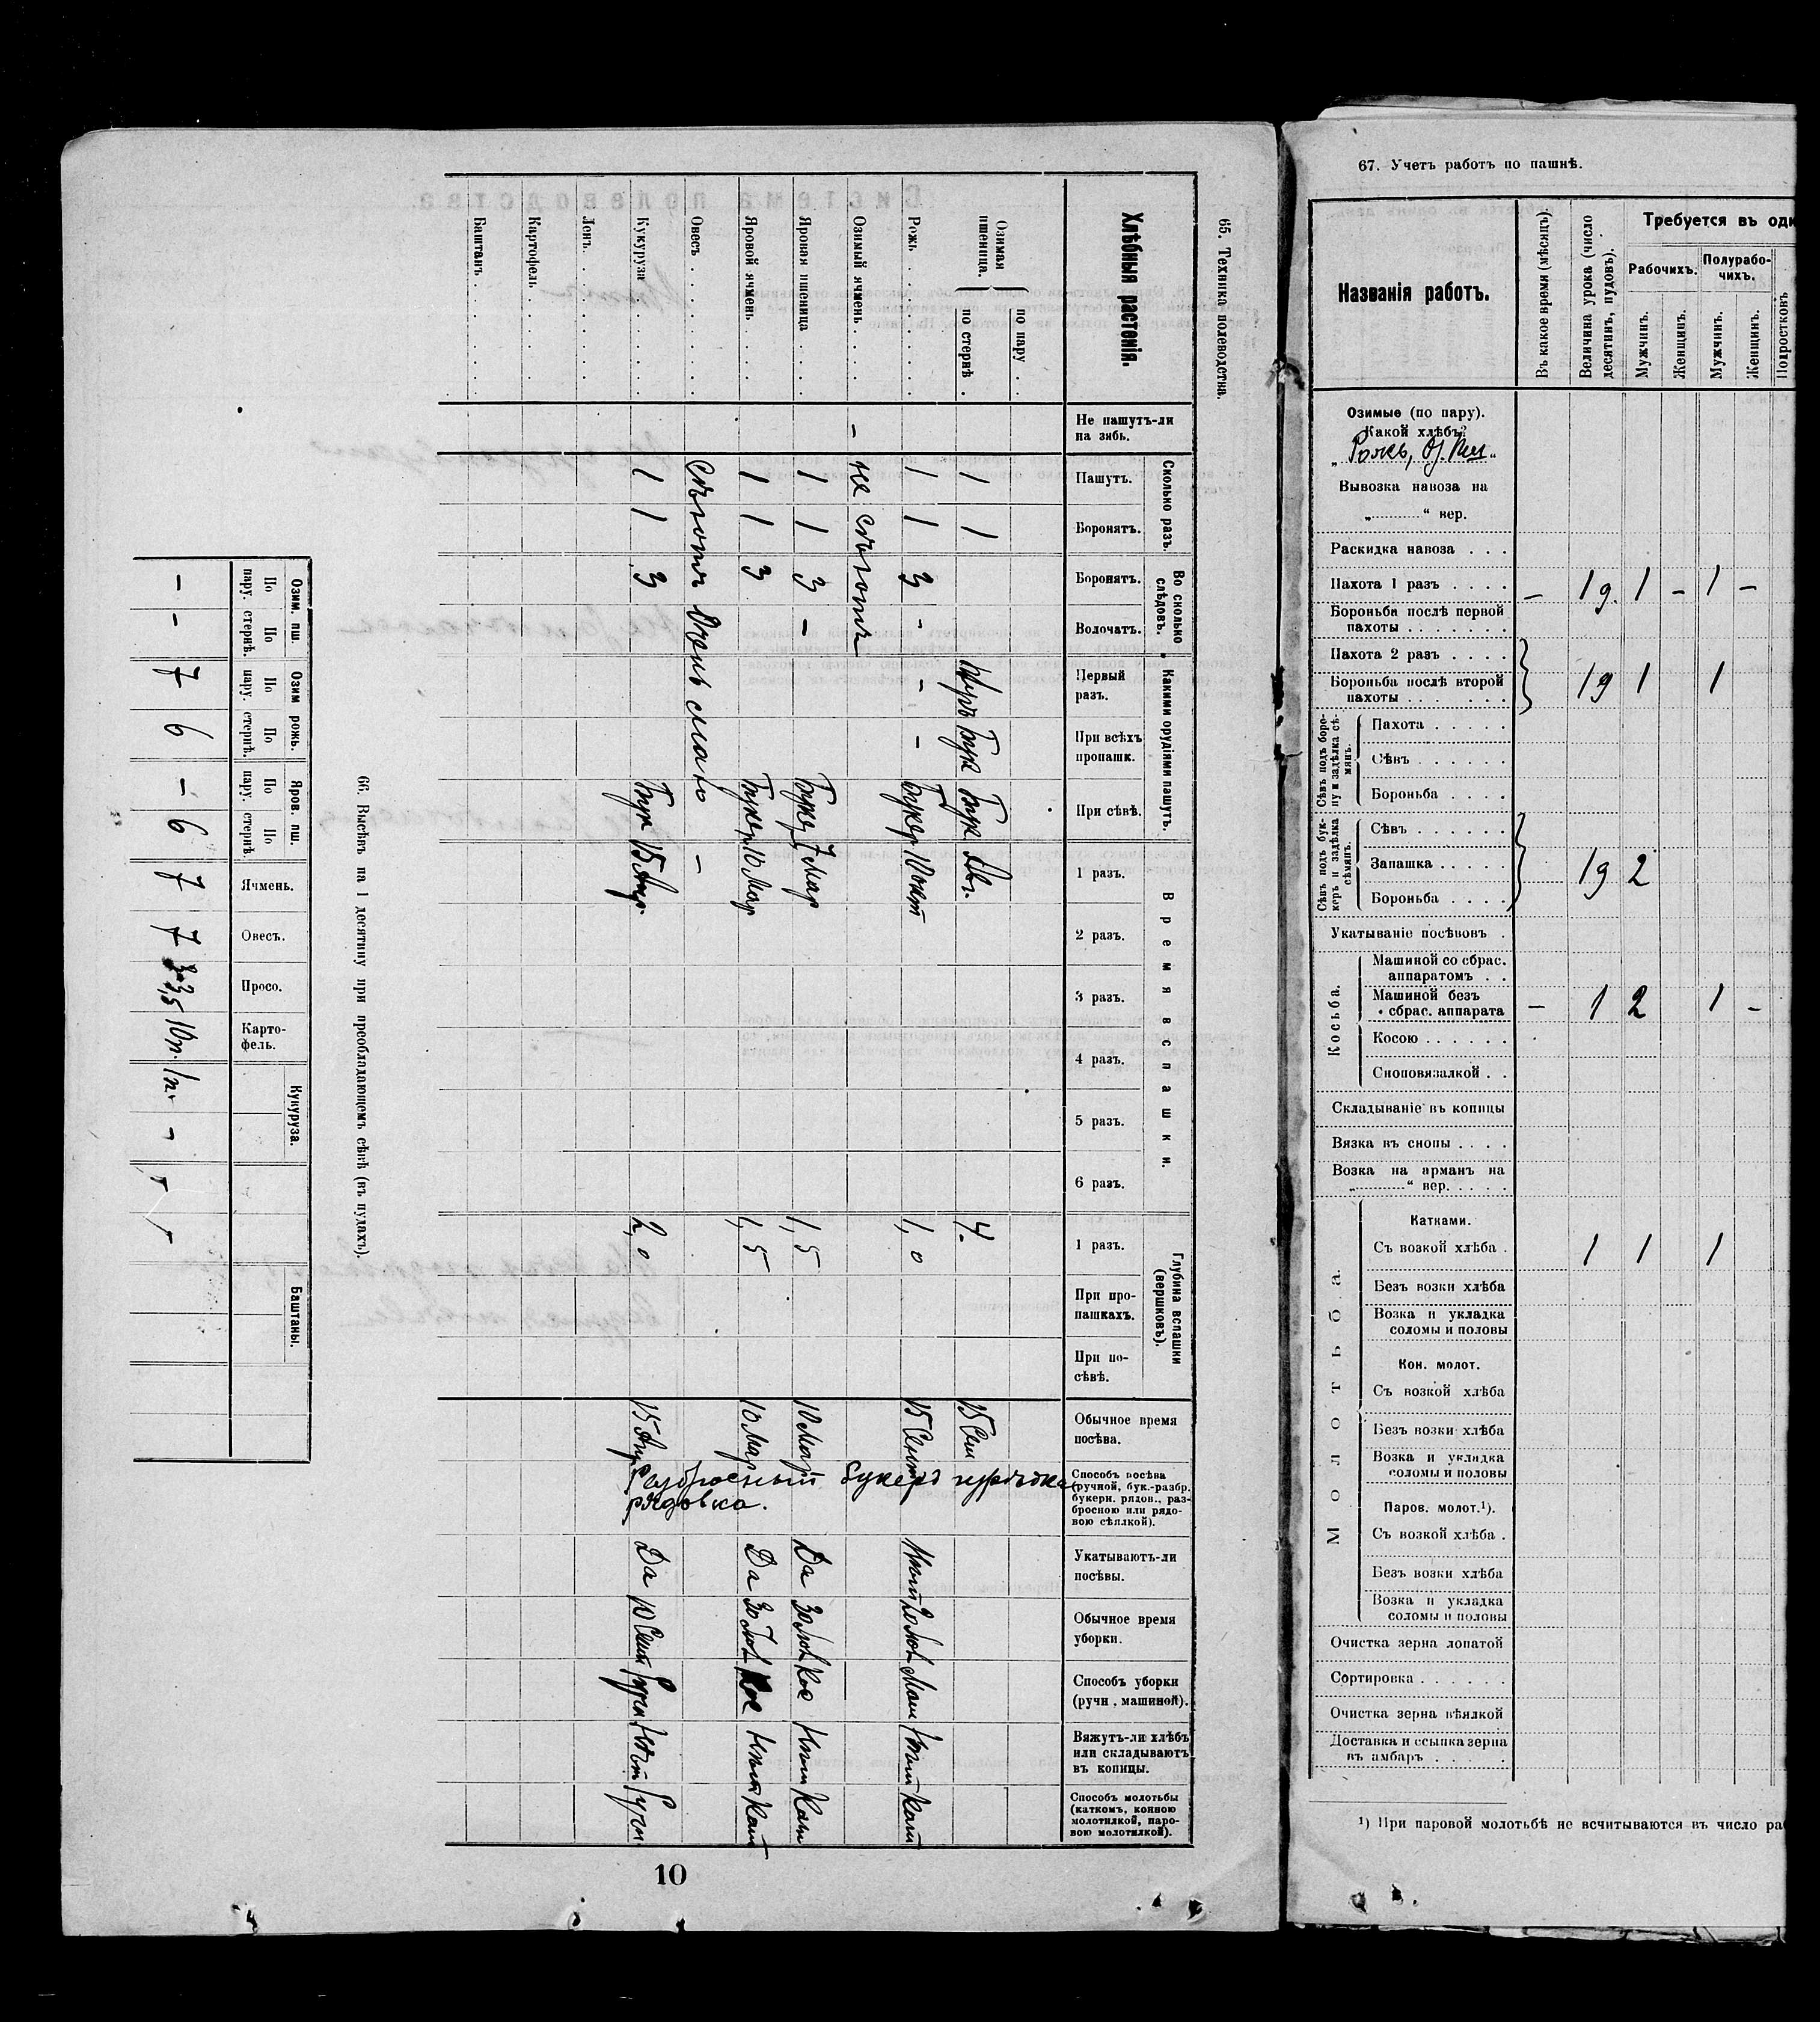 65. Техника полеводства.
Хлѣбныя растенія.
Не пашутъ-ли на зябь.
Сколько разъ.
Пашутъ.
Боронятъ.
Во сколько слѣдовъ.
Боронятъ.
Волочатъ.
Какими орудіями пашутъ.
Первый разъ.
При всѣхъ пропашк.
При сѣвѣ.
Время вспашки.
1 разъ.
2 разъ.
3 разъ.
4 разъ.
5 разъ.
6 разъ.
Глубина вспашки (вершковъ).
1 разъ.
При пропашкахъ.
При посѣвѣ.
Обычное время посѣва.
Способъ посѣва (ручной, бук.-разбр. букерн. рядов., разбросною или рядовою сѣялкой).
Укатываютъ-ли посѣвы.
Обычное время уборки.
Способъ уборки (ручн. машиной).
Вяжутъ-ли хлѣбъ или складываютъ въ копицы.
Способъ молотьбы (каткомъ, конною молотилкой, паровою молотилкой).
Озимая пшеница.
по пару . .
по стернѣ . 1 1 Бук Бук Авг. 4. 15 Сен
Рожь . . . . 1 1 3 - - - Букер 10 окт 1,0 15 Сент Нѣтъ 20 Июл Маш Нѣтъ Кат
Озимый ячмень . . . . - не сѣютъ
Яровая пшеница . . . 1 1 3 - Букер 7 Мар 1,5 10 Мар Да 30 Июл Кос Нѣтъ Кат
Яровой ячмень . . . 1 1 3 Букер 10 Мар 1,5 10 Мар Да 30 Июл Кос Нѣтъ Кат
Овесъ . . . . . . Сѣютъ очень мало -
Кукуруза . . . . 1 1 3 Бук 15 Апр. 2,0 15 Апр Да 10 Сент Ручн Нѣтъ Ручн
Разбросный букеръ
рядовка.
Ленъ . . . . . .
Картофель . . . .
Баштанъ . . . .
66. Высѣвъ на 1 десятину при преобладающемъ сѣвѣ (въ пудахъ).
Озим. пш.
По пару.
По стернѣ.
Озим рожь.
По пару.
По стернѣ.
Яров. пш.
По пару.
По стернѣ.
Ячмень.
Овесъ.
Просо.
Картофель.
Кукуруза.
Баштаны.
- - 7 6 - 6 7 7 3-3,5 10п. 1п. -
10
67. Учетъ работъ по пашнѣ.
Названія работъ.
Въ какое время (мѣсяцъ).
Величина урока (число десятинъ, пудовъ).
Требуется въ оди
Рабочихъ.
Полурабочихъ.
Мужчинъ.
Женщинъ.
Мужчинъ.
Женщинъ.
Подростковъ
Озимые (по пару).
Какой хлѣбъ?
„ Рожь, Оз. Пш “
Вывозка навоза на
„ “ вер.
Раскидка навоза . . .
Пахота 1 разъ . . . . - 19. 1 - 1 -
Бороньба послѣ первой
пахоты . . . . . . .
Пахота 2 разъ . . . .
Бороньба послѣ второй
пахоты . . . . . . . 19 1 1
Сѣвъ подъ борону и задѣлка сѣмянъ.
Пахота . . . . .
Сѣвъ . . . . . .
Бороньба . . . .
Сѣвъ подъ букеръ и задѣлка сѣмянъ.
Сѣвъ . . . . . .
Запашка . . . . . 19 2
Бороньба . . . .
Укатываніе посѣвовъ .
Косьба.
Машиной со сбрас.
аппаратомъ . .
Машиной безъ
сбрас. аппарата - 1 2 1 -
Косою . . . . . .
Сноповязалкой . .
Складываніе въ копицы
Вязка въ снопы . . . .
Возка на арманъ на
„ “ вер. . . . .
Молотьба.
Катками.
Съ возкой хлѣба . 1 1 1
Безъ возки хлѣба
Возка и укладка
соломы и половы
Кон. молот.
Съ возкой хлѣба
Безъ возки хлѣба
Возка и укладка
соломы и половы
Паров. молот.¹).
Съ возкой хлѣба .
Безъ возки хлѣба
Возка и укладка
соломы и половы
Очистка зерна лопатой
Сортировка . . . . . .
Очистка зерна вѣялкой
Доставка и ссыпка зерна
въ амбаръ . . . . .
¹) При паровой молотьбѣ не всчитываются въ число ра